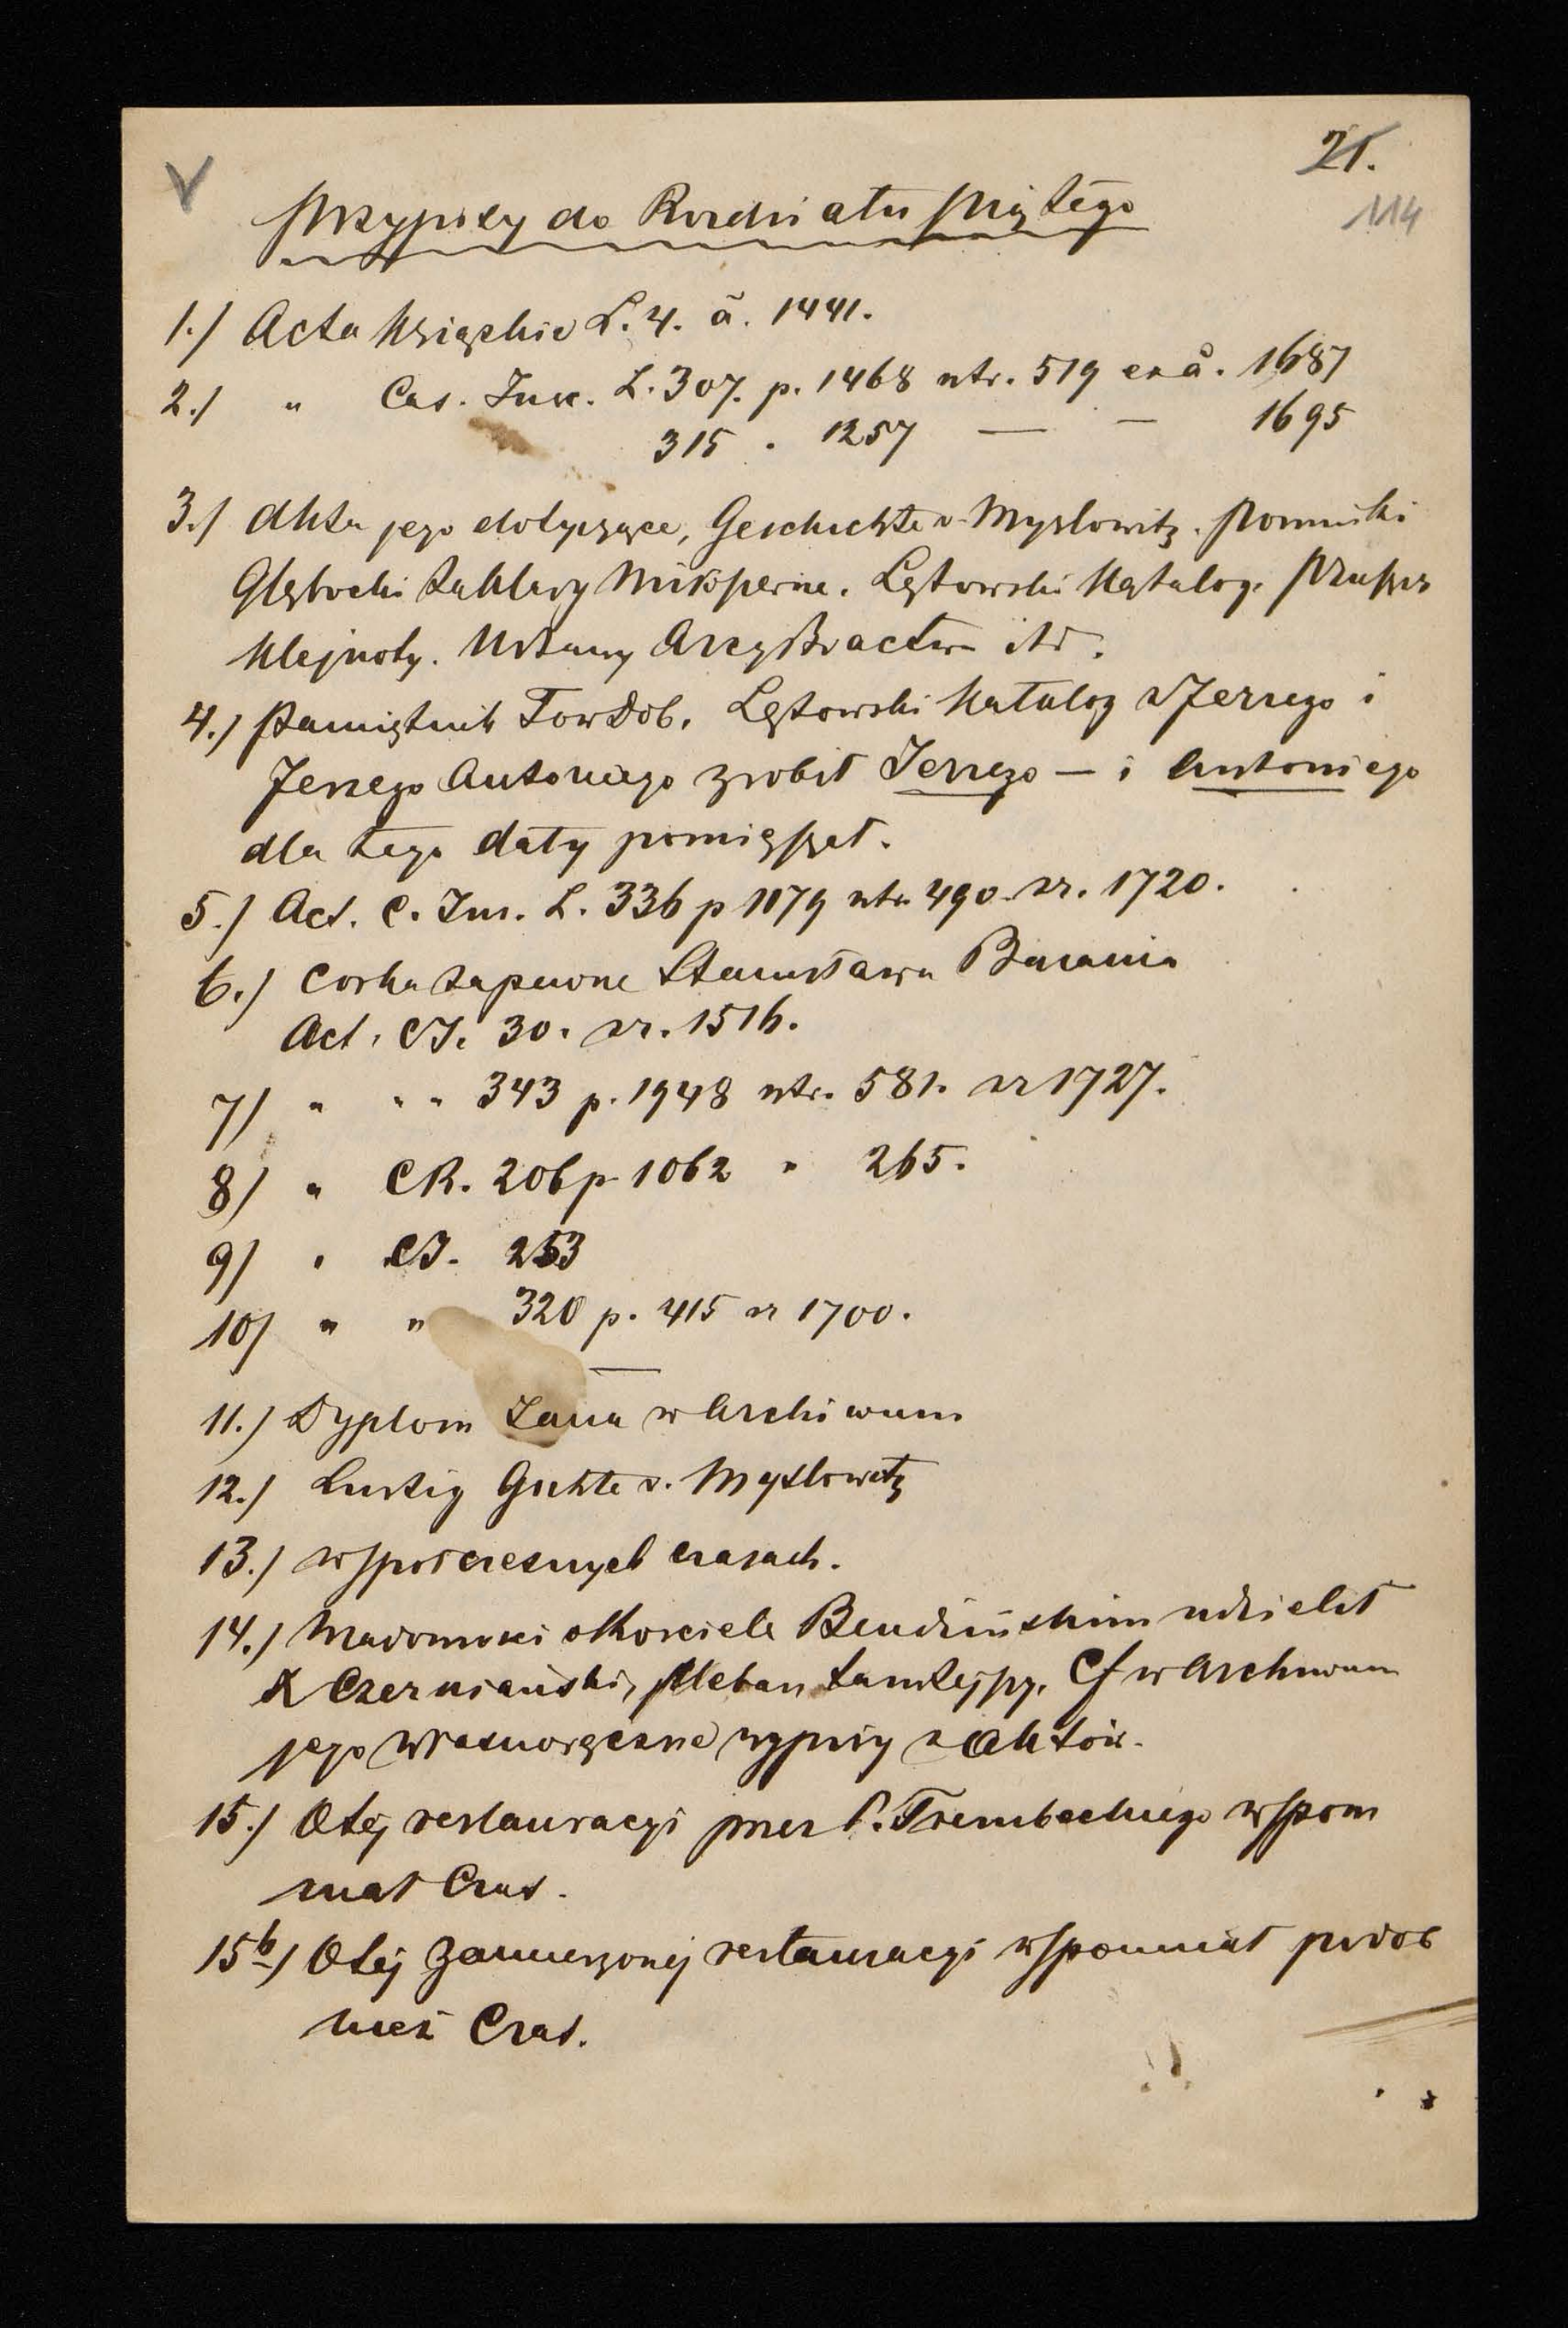 21.
114
Przypisy do Rozdziału Piątego
1.) Acta Książęhie L. 4. ā. 1441.
2.) " Cas. Inscr. L. 307. p. 1468 ntr. 519 ex å. 1687
315 . 1257 — — 1695
3.) Akta jego dotyczące, Geschichte v. Myslowitz. Pomniki
Głębocki Zakłady Miłosierne. Lętowski Katalog. Pruszcz
Klejnoty. Ustawy Arcybractwa itd.
4.) Pamiętnik Tow Dob. Lętowski Katalog z Jerzego i
Jerzego Antoniego zrobił Jerzego — i Antoniego
dla tego daty pomięszał.
5.) Act. C. Ins. L. 336 p 1079 ntr. 490 zr. 1720.
6.) Corka zapewne Stanisława
Act. CJ. 30. zr. 1516.
7) " " " 343 p. 1948 ntr. 581. zr 1727.
8) " CR. 206 p. 1062 " 265.
9) " CJ. 253
10) " " 320 p. 415 zr 1700.
11.) Dyplom Jana w Archiwum
12.) Lustig Gschte v. Myslowitz
13.) w społczesnych czasach.
14.) Wiadomości o Kościele Bendzińskim udzielił
X Czerniański, Pleban tamtejszy. Cf w Archiwum
jego własnoręczne wypisy z Aktów.
15.) O tej restauracyi przez P. Trembeckiego wspom
niał Czas.
15b) O tej zamierzonej restauracyi wspomniał podob
nież Czas.